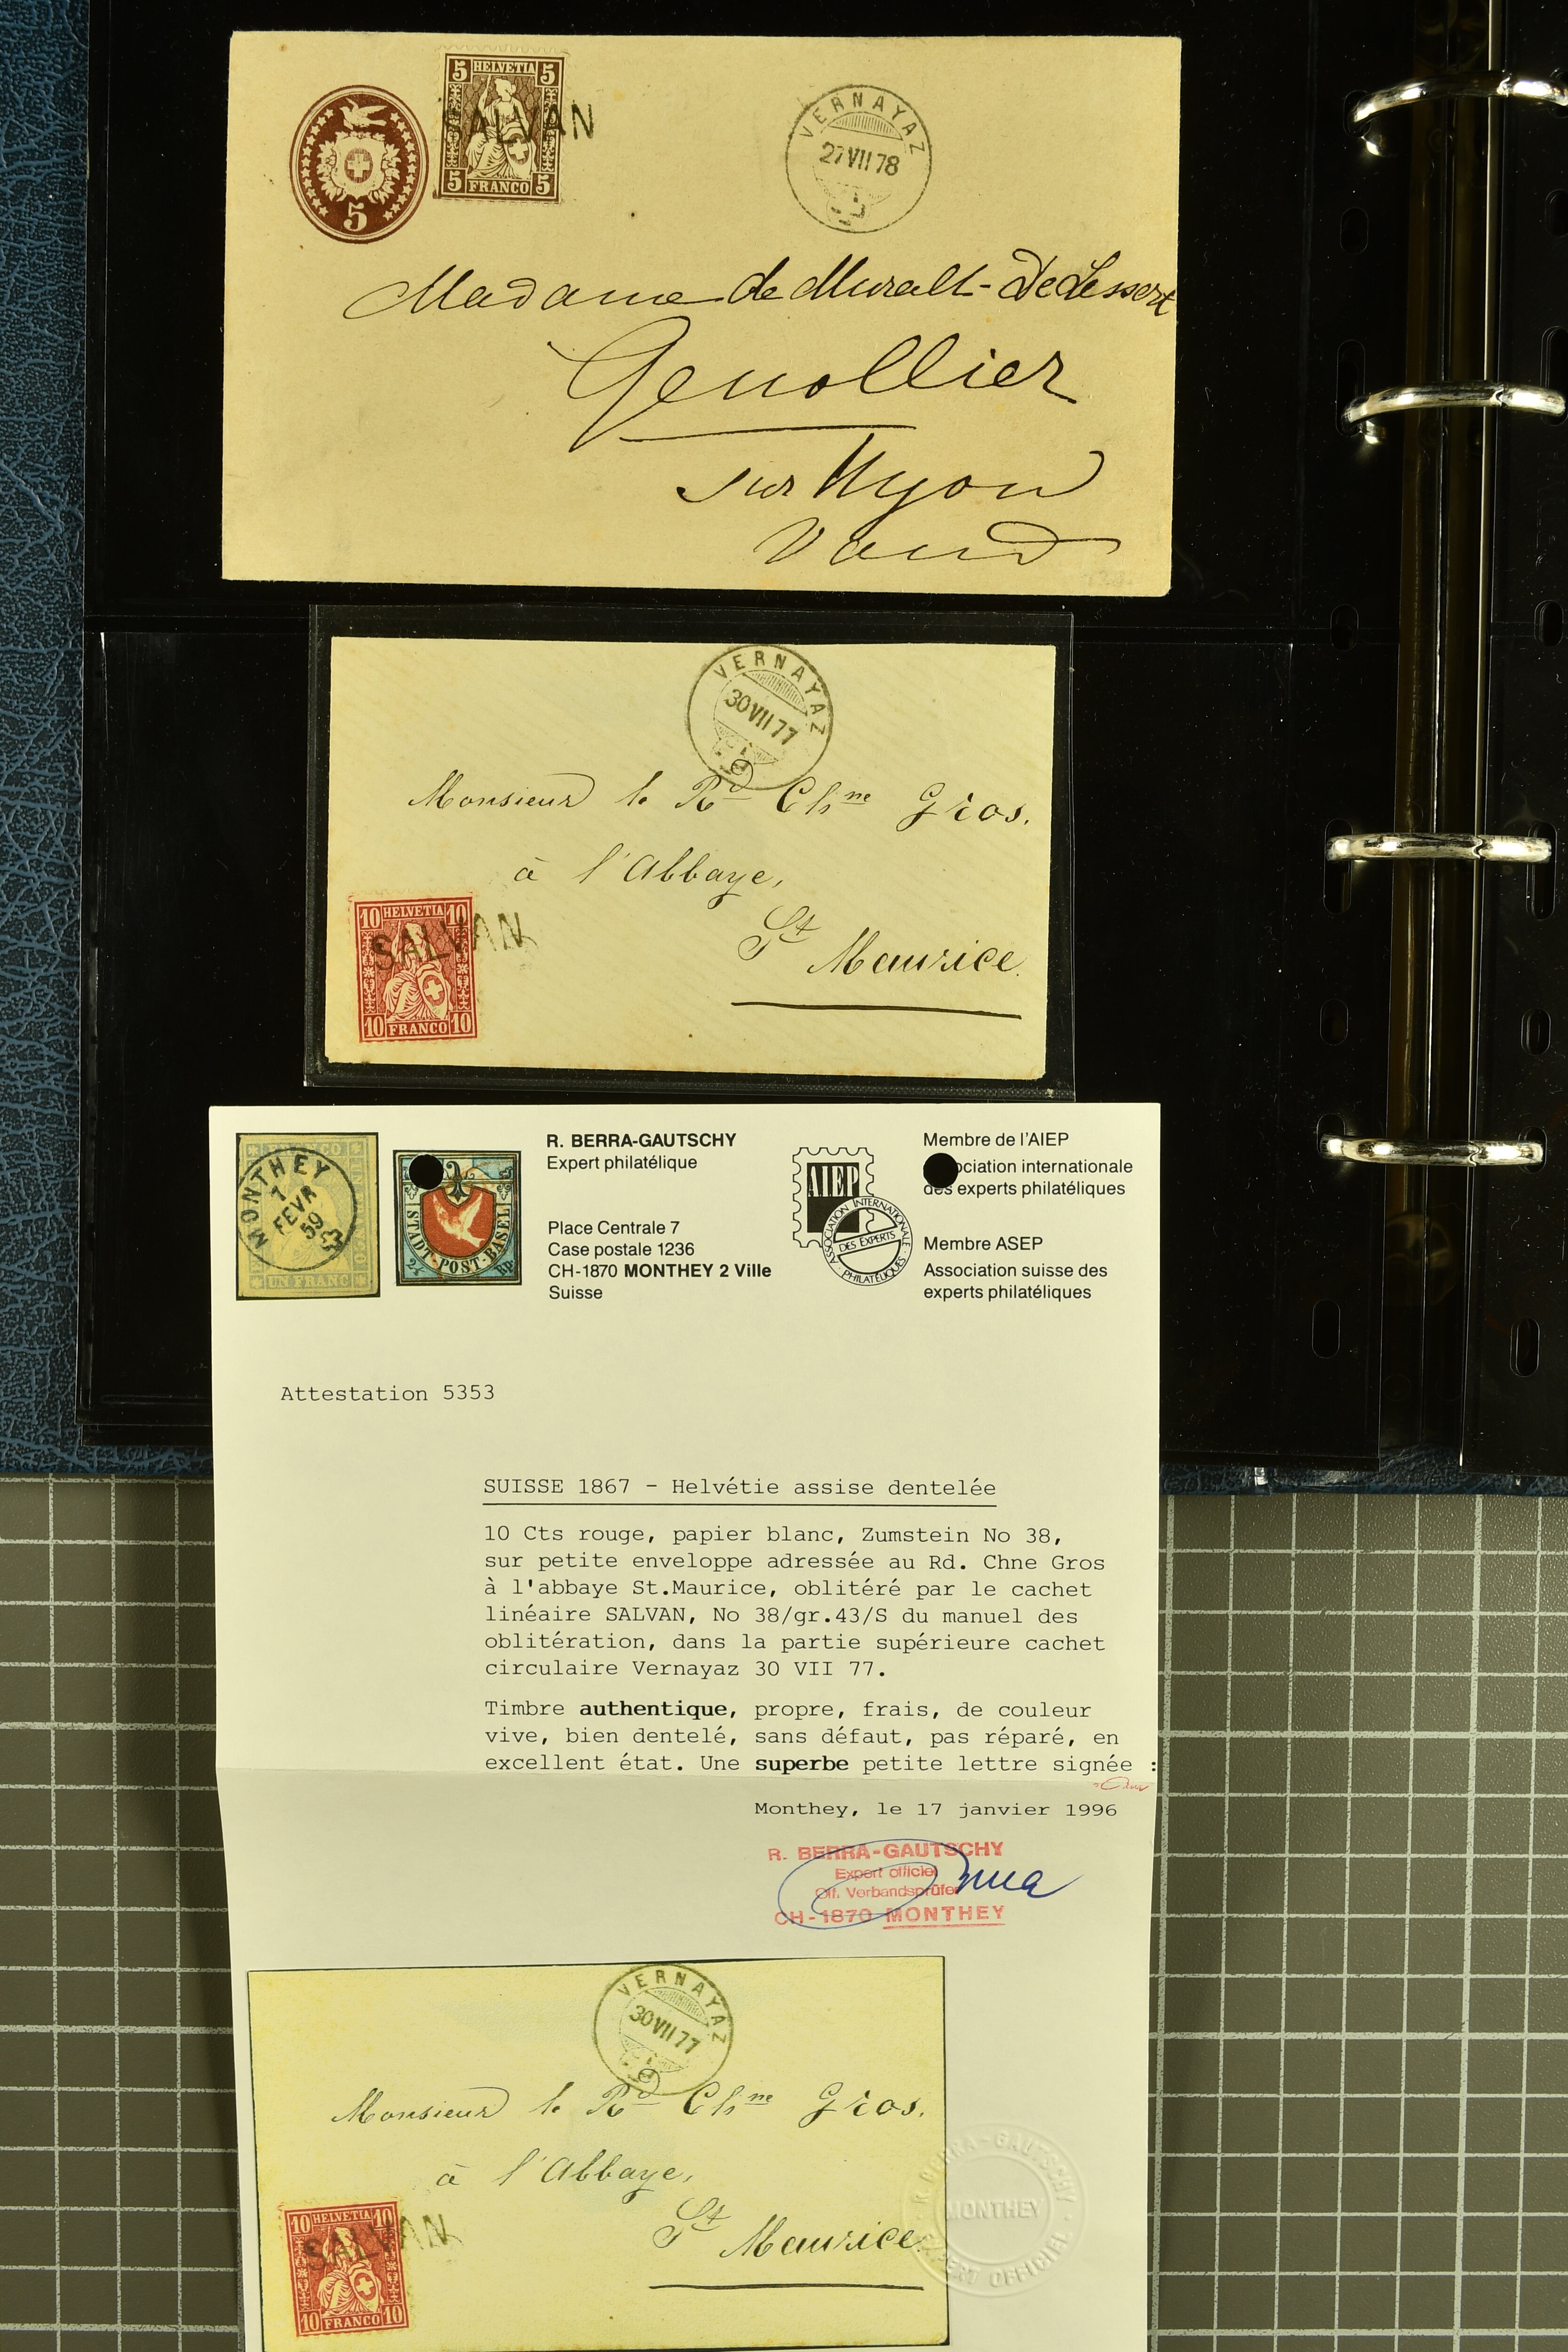 5 HELVETIA 5
5 FRANCO 5
SALVAN
5
VERNAYAZ
27 VII 78
Madame de Muralt-DeLessert
Genollier
sur Nyon
Vaud
VERNAYAZ
30 VII 77
Monsieur le Rd Chne Gros.
à l'Abbaye,
St Maurice.
10 HELVETIA 10
SALVAN
10 FRANCO 10
MONTHEY
7
FEVR
59
UN FRANC
STADT-POST-BASEL
2½ Rp.
R. BERRA-GAUTSCHY
Expert philatélique
Place Centrale 7
Case postale 1236
CH-1870 MONTHEY 2 Ville
Suisse
AIEP
ASSOCIATION INTERNATIONALE
DES EXPERTS
PHILATÉLIQUES
Membre de l'AIEP
ociation internationale
des experts philatéliques
Membre ASEP
Association suisse des
experts philatéliques
Attestation 5353
SUISSE 1867 - Helvétie assise dentelée
10 Cts rouge, papier blanc, Zumstein No 38,
sur petite enveloppe adressée au Rd. Chne Gros
à l'abbaye St.Maurice, oblitéré par le cachet
linéaire SALVAN, No 38/gr.43/S du manuel des
oblitération, dans la partie supérieure cachet
circulaire Vernayaz 30 VII 77.
Timbre authentique, propre, frais, de couleur
vive, bien dentelé, sans défaut, pas réparé, en
excellent état. Une superbe petite lettre signée :
Monthey, le 17 janvier 1996
R. BERRA-GAUTSCHY
Expert officiel
Off. Verbandsprüfer
CH-1870 MONTHEY
VERNAYAZ
30 VII 77
Monsieur le Rd Chne Gros.
à l'Abbaye,
St Maurice.
10 HELVETIA 10
SALVAN
10 FRANCO 10
R. BERRA-GAUTSCHY
MONTHEY
EXPERT OFFICIEL